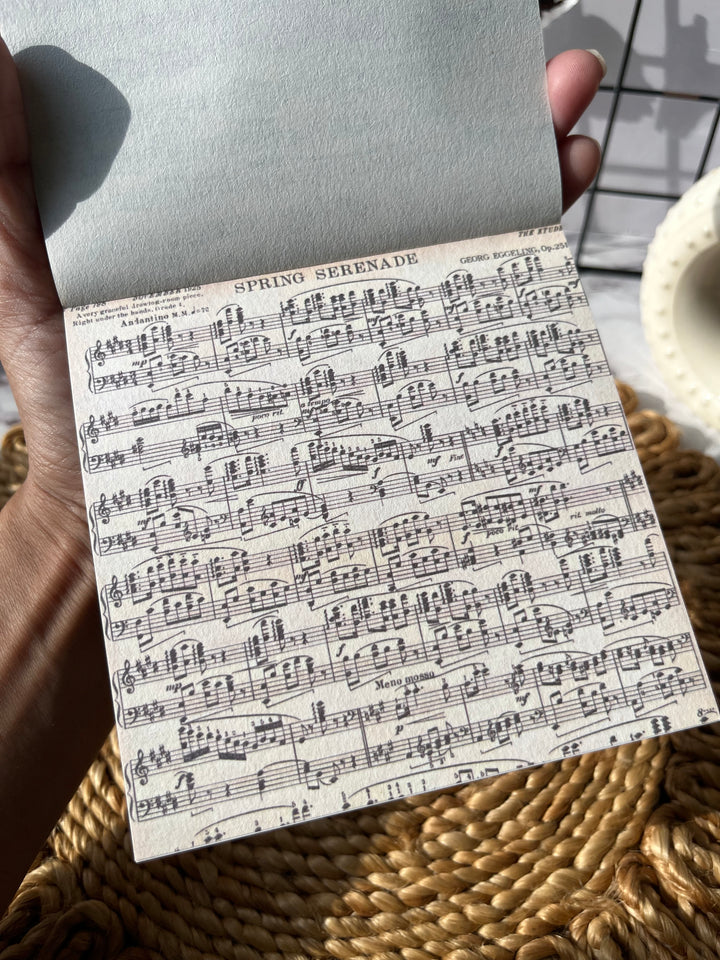 THE ETUDE
Page 798 NOVEMBER 1925
SPRING SERENADE
GEORG EGGELING, Op. 25
A very graceful drawing-room piece.
Right under the hands. Grade 4.
Andantino M.M. ♩=72
mp
f
poco rit.
a tempo
f
mf
ff
f
mf Fine
mf
poco rit.
rit. molto
mp
f
Meno mosso
mf
f